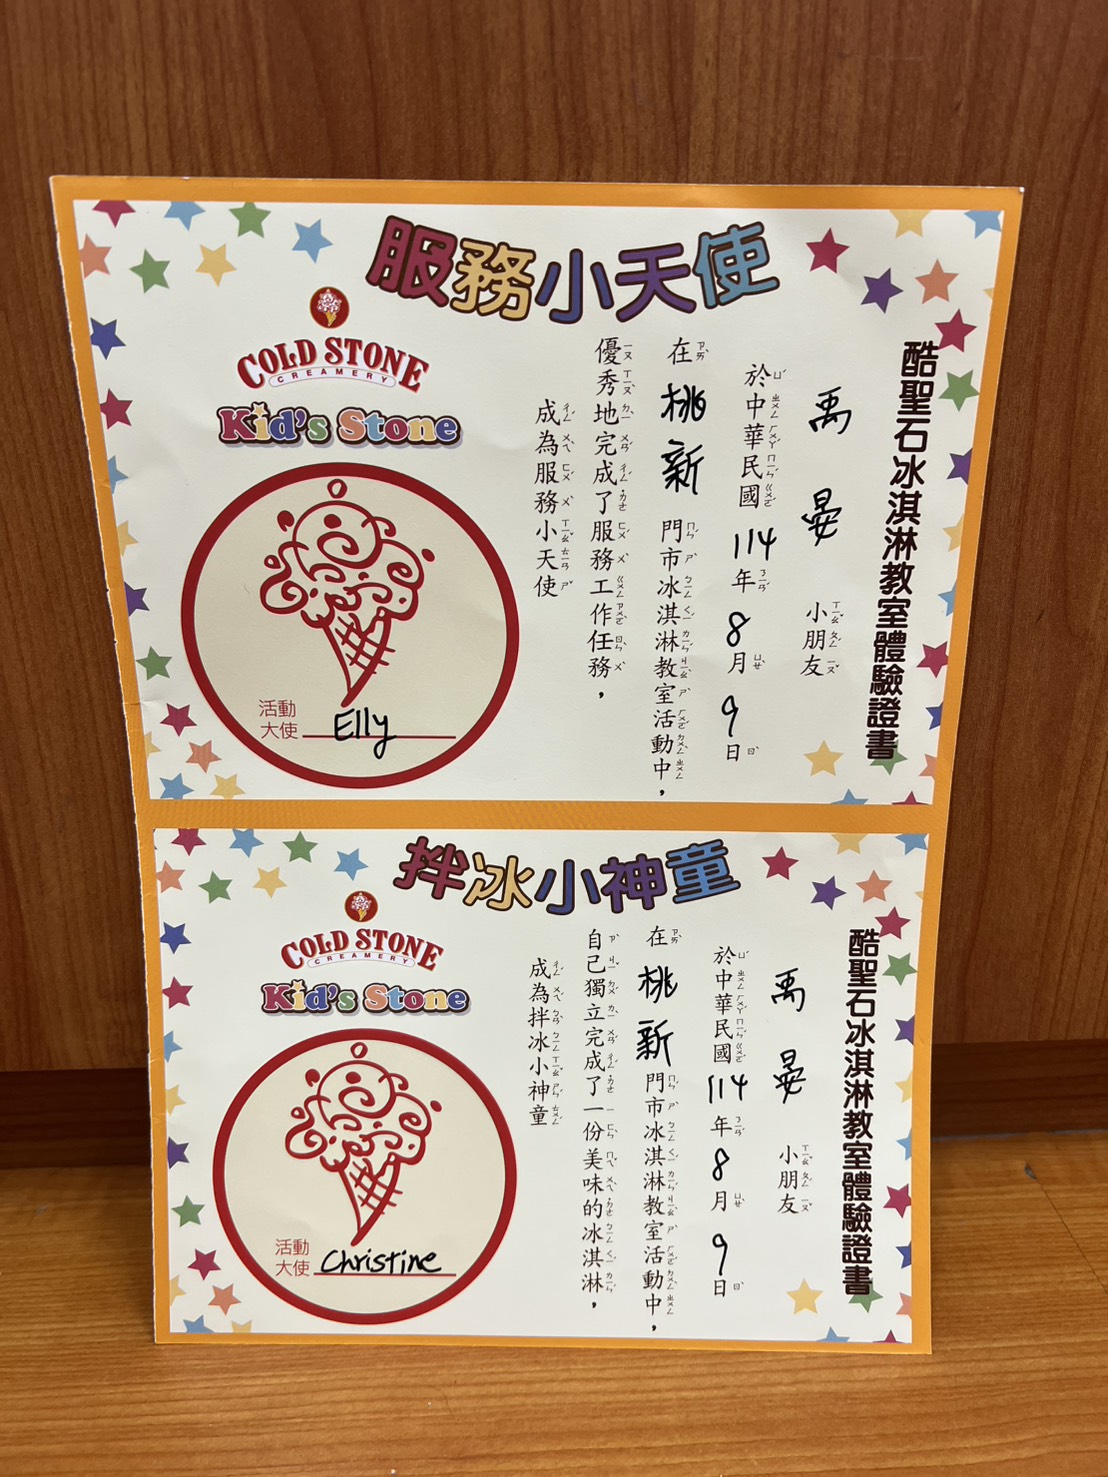 服務小天使
酷聖石冰淇淋教室體驗證書
禹晏小朋友
於中華民國114年8月9日
在桃新門市冰淇淋教室活動中，
優秀地完成了服務工作任務，
成為服務小天使
COLD STONE
CREAMERY
Kid's Stone
活動
大使 Elly
拌冰小神童
酷聖石冰淇淋教室體驗證書
禹晏小朋友
於中華民國114年8月9日
在桃新門市冰淇淋教室活動中，
自己獨立完成了一份美味的冰淇淋，
成為拌冰小神童
COLD STONE
CREAMERY
Kid's Stone
活動
大使 Christine